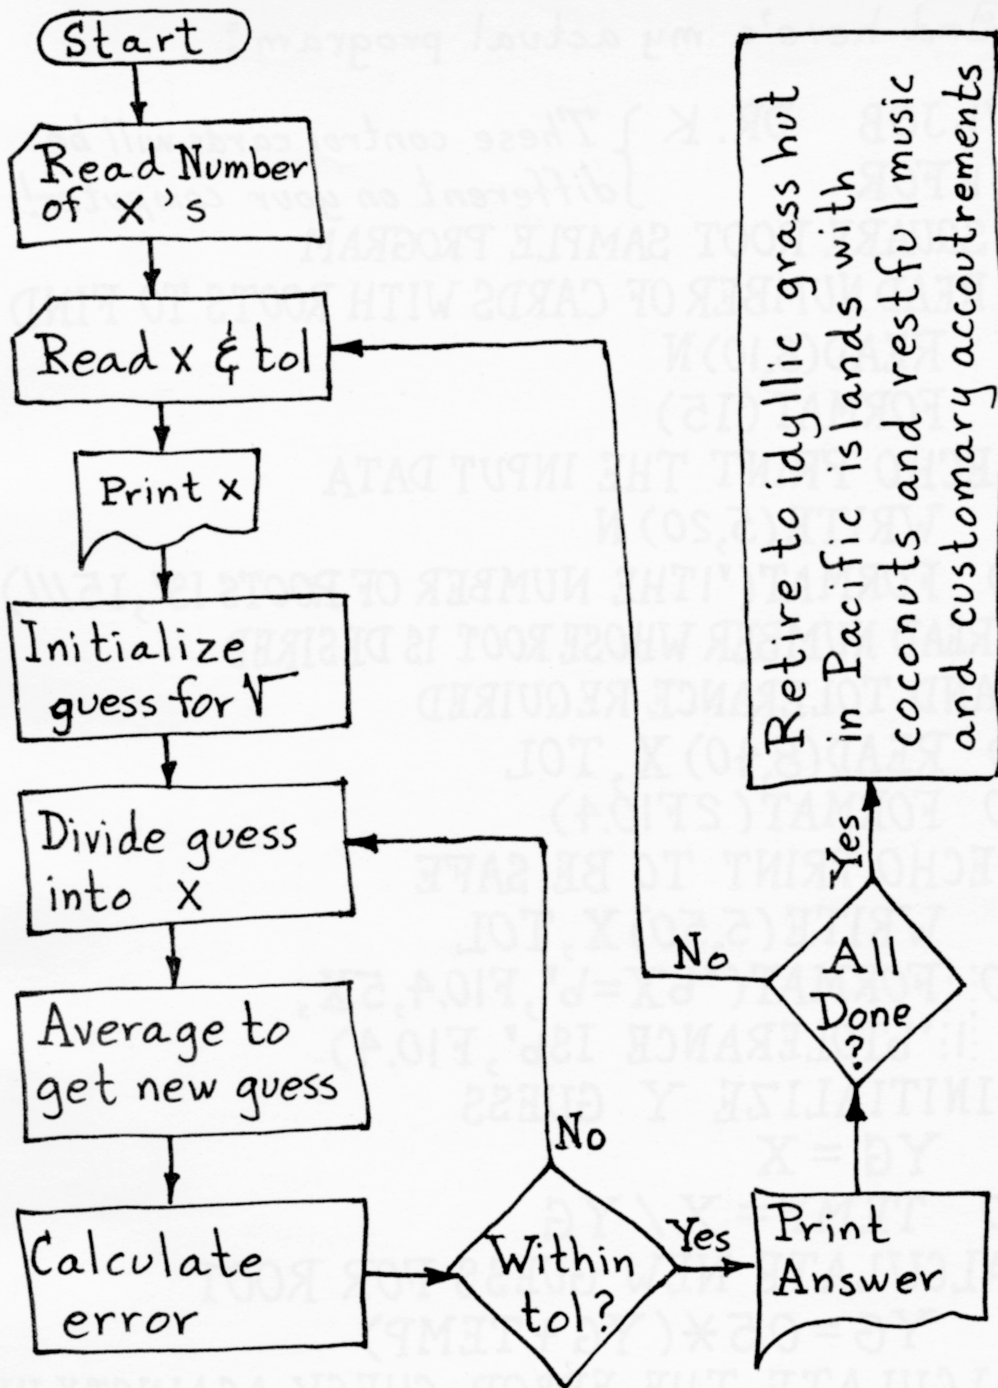 Start
Read Number
of X's
Read x & tol
Print x
Initialize
guess for √
Divide guess
into X
Average to
get new guess
Calculate
error
No
Within
tol?
Yes
Print
Answer
All
Done
?
No
Yes
Retire to idyllic grass hut
in Pacific islands with
coconuts and restful music
and customary accoutrements